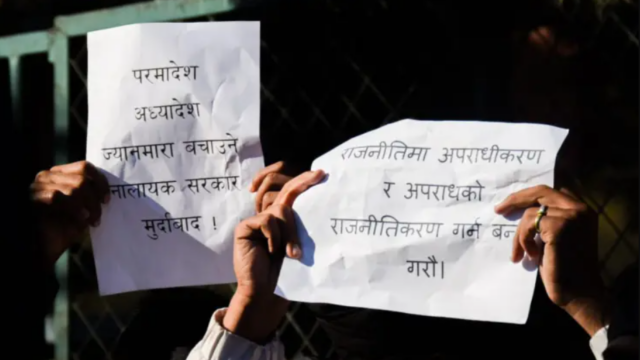 परमादेश
अध्यादेश
ज्यानमारा बचाउने
नालायक सरकार
मुर्दाबाद !
राजनीतिमा अपराधीकरण
र अपराधको
राजनीतिकरण गर्न
गरौ।